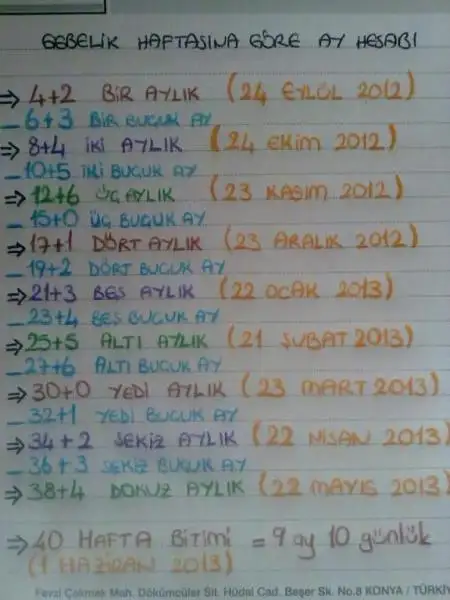 GEBELİK HAFTASINA GÖRE AY HESABI
⇒ 4+2 BİR AYLIK (24 EYLÜL 2012)
- 6+3 BİR BUÇUK AY
⇒ 8+4 İKİ AYLIK (24 EKİM 2012)
- 10+5 İKİ BUÇUK AY
⇒ 12+6 ÜÇ AYLIK (23 KASIM 2012)
- 15+0 ÜÇ BUÇUK AY
⇒ 17+1 DÖRT AYLIK (23 ARALIK 2012)
- 19+2 DÖRT BUÇUK AY
⇒ 21+3 BEŞ AYLIK (22 OCAK 2013)
- 23+4 BEŞ BUÇUK AY
⇒ 25+5 ALTI AYLIK (21 ŞUBAT 2013)
- 27+6 ALTI BUÇUK AY
⇒ 30+0 YEDİ AYLIK (23 MART 2013)
- 32+1 YEDİ BUÇUK AY
⇒ 34+2 SEKİZ AYLIK (22 NİSAN 2013)
- 36+3 SEKİZ BUÇUK AY
⇒ 38+4 DOKUZ AYLIK (22 MAYIS 2013)
⇒ 40 HAFTA BİTİMİ = 9 ay 10 günlük
(1 HAZİRAN 2013)
Fevzi Çakmak Mah. Dökümcüler Sit. Hüdai Cad. Beşer Sk. No.8 KONYA / TÜRKİY